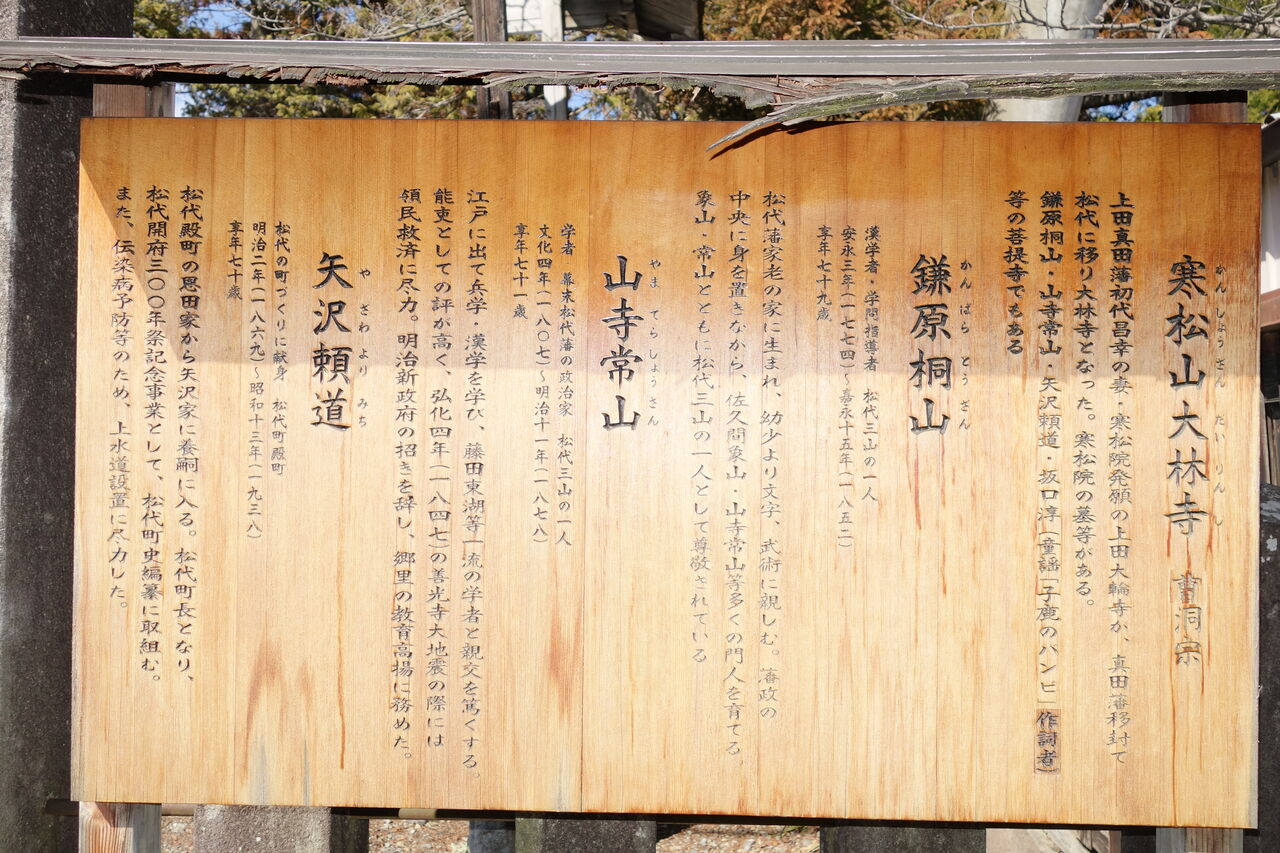 寒松山大林寺 曹洞宗
かんしょうざん だいりんじ
上田真田藩初代昌幸の妻・寒松院発願の上田大輪寺が、真田藩移封で
松代に移り大林寺となった。寒松院の墓等がある。
鎌原桐山・山寺常山・矢沢頼道・坂口淳(童謡「子鹿のバンビ」作詞者)
等の菩提寺でもある
鎌原桐山
かんばら とうざん
漢学者・学問指導者 松代三山の一人
安永三年(一七七四)~嘉永十五年(一八五二)
享年七十九歳
松代藩家老の家に生まれ、幼少より文字、武術に親しむ。藩政の
中央に身を置きながら、佐久間象山・山寺常山等多くの門人を育てる
象山・常山とともに松代三山の一人として尊敬されている
山寺常山
やま てら しょうざん
学者 幕末松代藩の政治家 松代三山の一人
文化四年(一八〇七)~明治十一年(一八七八)
享年七十一歳
江戸に出て兵学・漢学を学び、藤田東湖等一流の学者と親交を篤くする。
能吏としての評が高く、弘化四年(一八四七)の善光寺大地震の際には
領民救済に尽力。明治新政府の招きを辞し、郷里の教育高揚に務めた。
矢沢頼道
や ざわ より みち
松代の町づくりに献身 松代町殿町
明治二年(一八六九)~昭和十三年(一九三八)
享年七十歳
松代殿町の恩田家から矢沢家に養嗣に入る。松代町長となり、
松代開府三〇〇年祭記念事業として、松代町史編纂に取組む。
また、伝染病予防等のため、上水道設置に尽力した。